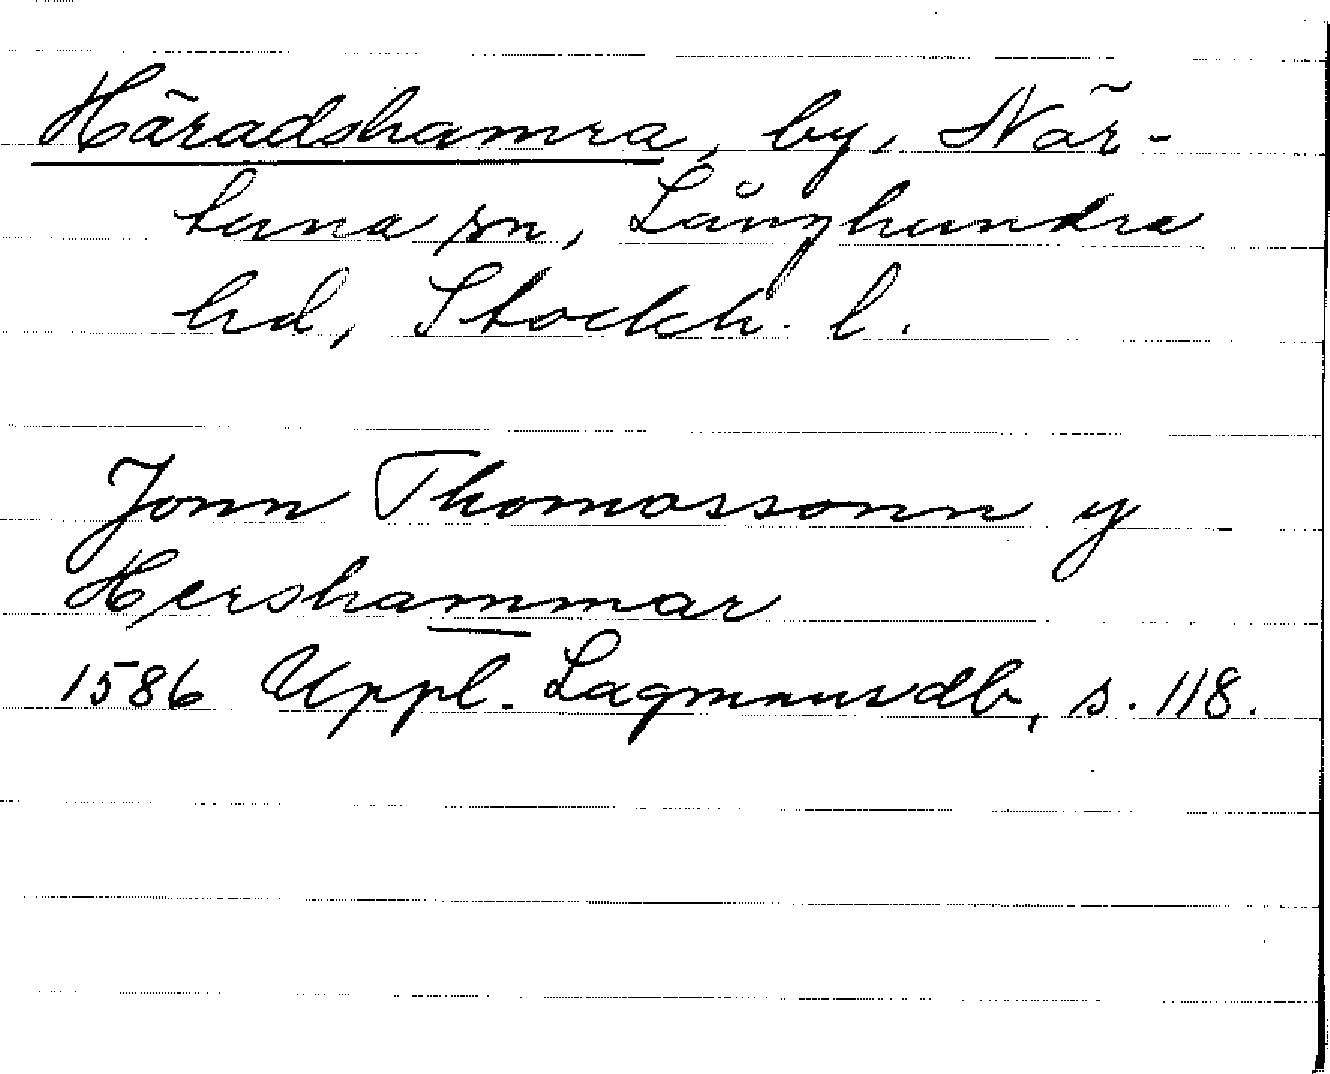 Häradshamra, by, När-
tuna sn, Långhundra
hd, Stockh. l.
Jonn Thomassonn y
Hershammar
1586 Uppl. Lagmansdb, s. 118.